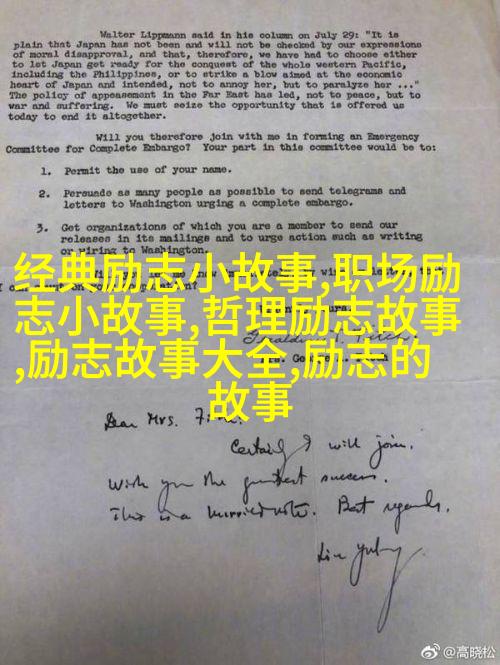 Walter Lippmann said in his column on July 29: "It is
plain that Japan has not been and will not be checked by our expressions
of moral disapproval, and that, therefore, we have had to choose either
to let Japan get ready for the conquest of the whole western Pacific,
including the Philippines, or to strike a blow aimed at the economic
heart of Japan and intended, not to annoy her, but to paralyze her ..."
The policy of appeasement in the Far East has led, not to peace, but to
war and suffering. We must seize the opportunity that is offered us
today to end it altogether.
Will you therefore join with me in forming an Emergency
Committee for Complete Embargo? Your part in this committee would be to:
1. Permit the use of your name.
2. Persuade as many people as possible to send telegrams and
letters to Washington urging a complete embargo.
3. Get organizations of which you are a member to send our
releases in its mailings and to urge action such as writing
or wiring to Washington.
经典励志小故事,职场励
志小故事,哲理励志故事
,励志故事大全,励志的
故事
Dear Mrs. Fitch:
Certainly I will join.
Wish you the greatest success.
This is a hurried note. Best regards.
Lin Yutang
@高晓松